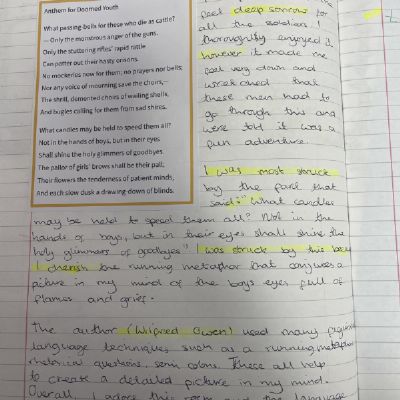 Anthem for Doomed Youth
What passing-bells for these who die as cattle?
— Only the monstrous anger of the guns.
Only the stuttering rifles' rapid rattle
Can patter out their hasty orisons.
No mockeries now for them; no prayers nor bells;
Nor any voice of mourning save the choirs,—
The shrill, demented choirs of wailing shells;
And bugles calling for them from sad shires.
What candles may be held to speed them all?
Not in the hands of boys, but in their eyes
Shall shine the holy glimmers of goodbyes.
The pallor of girls' brows shall be their pall;
Their flowers the tenderness of patient minds,
And each slow dusk a drawing-down of blinds.
feel deep sorrow for
all the soldiers. I
thoroughly enjoyed it
however it made me
feel very down and
wretched that
these men had to
go through this and
were told it was a
fun adventure.
I was most struck
by the part that
said: "What candles
may be held to speed them all? Not in the
hands of boys, but in their eyes shall shine the
holy glimmers of goodbyes" I was struck by this
I cherish the running metaphor that conjures a
picture in my mind of the boys eyes full of
flames and grief.
The author (Wilfred Owen) used many
language techniques such as a running metaphor
rhetorical questions, semi colons. These all help
to create a detailed picture in my mind.
Overall, I adore this poem and the language